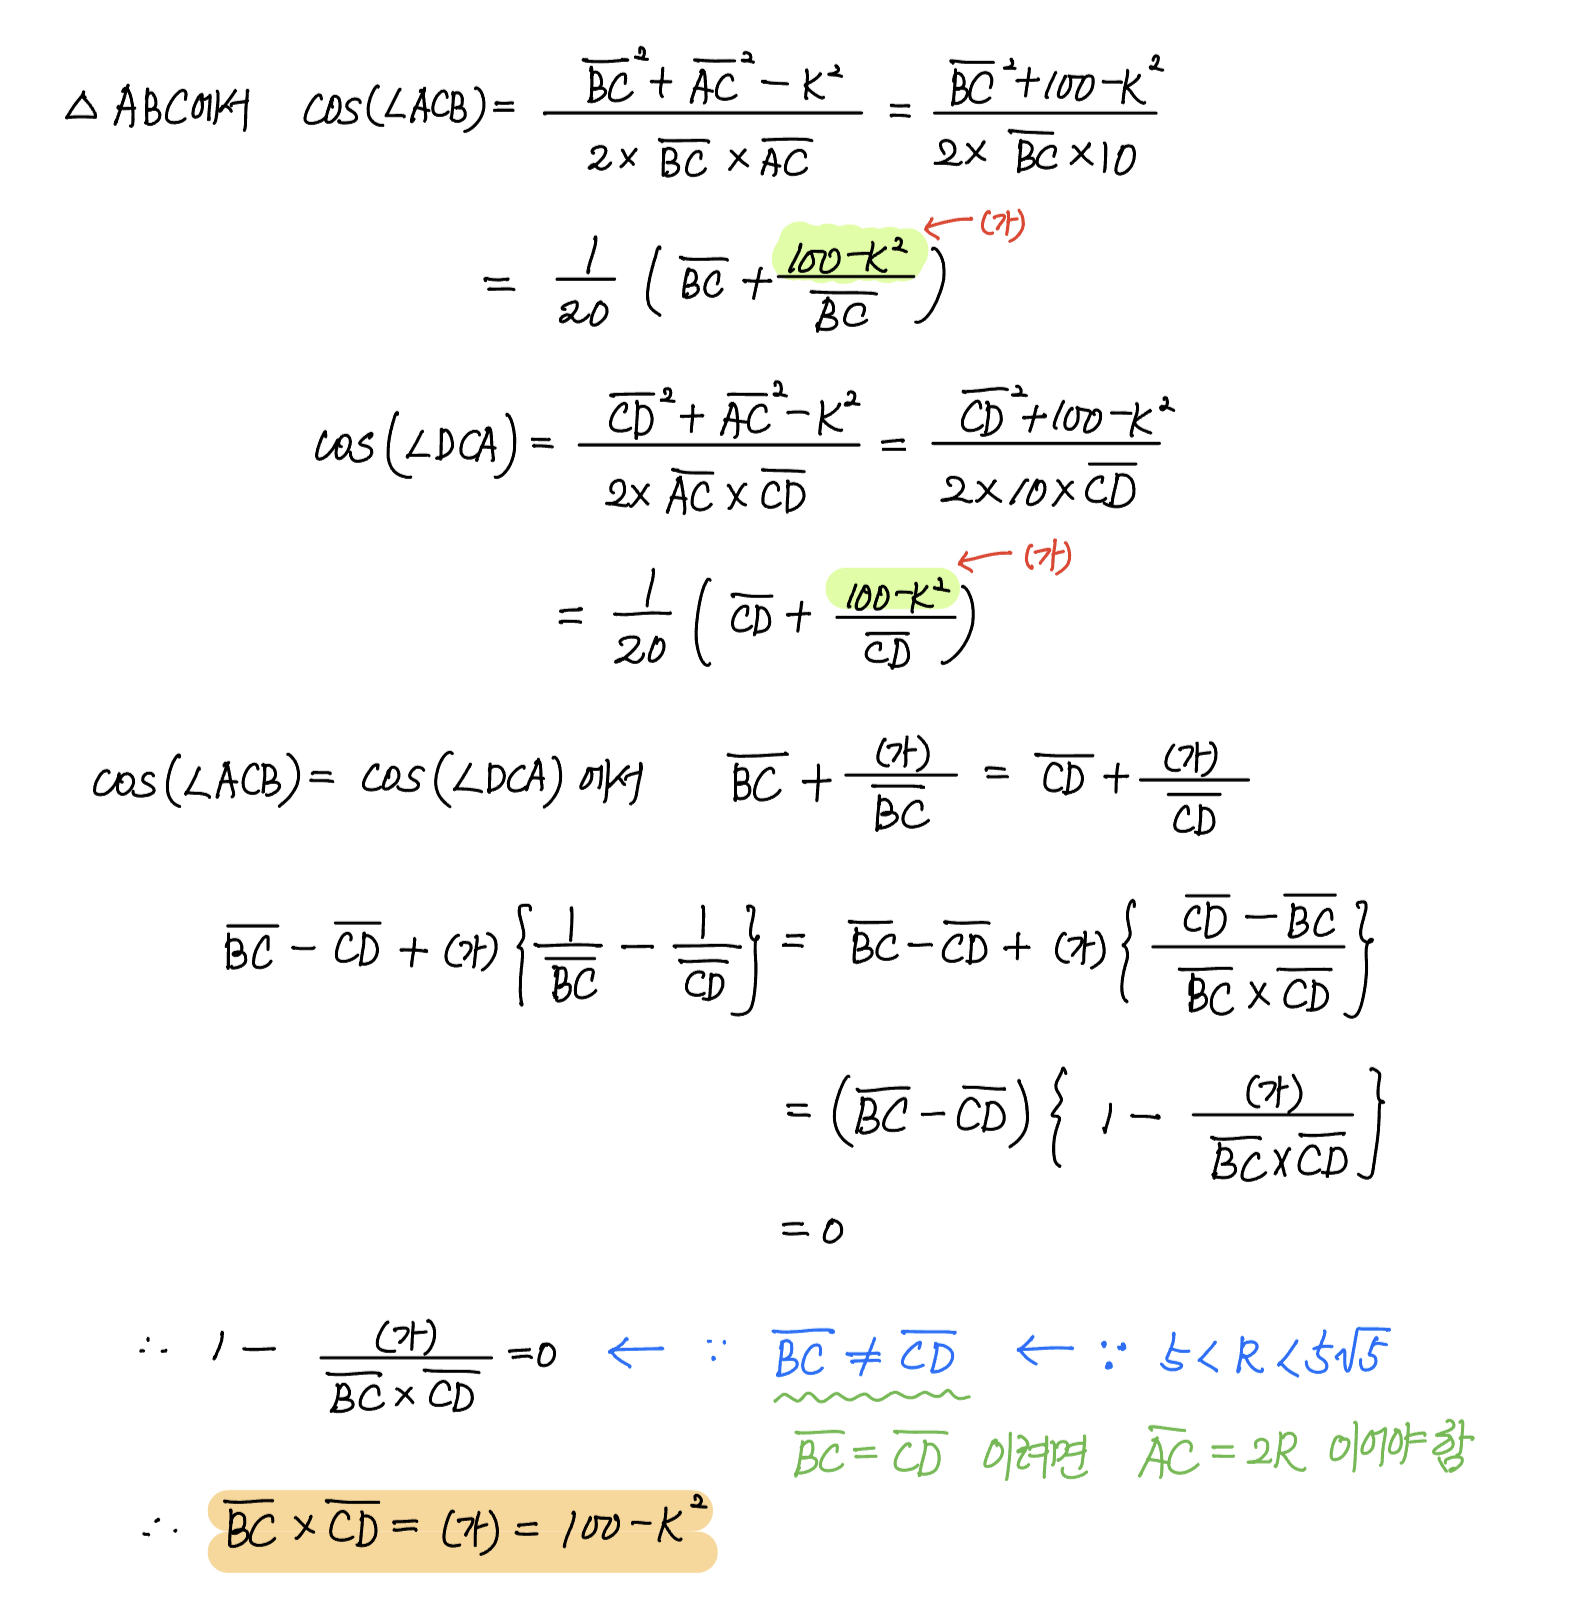 △ABC에서 cos(∠ACB) = (B̅C̅² + A̅C̅² − k²) / (2 × B̅C̅ × A̅C̅) = (B̅C̅² + 100 − k²) / (2 × B̅C̅ × 10)
= 1/20 ( B̅C̅ + (100 − k²)/B̅C̅ ) ← (가)
cos(∠DCA) = (C̅D̅² + A̅C̅² − k²) / (2 × A̅C̅ × C̅D̅) = (C̅D̅² + 100 − k²) / (2 × 10 × C̅D̅)
= 1/20 ( C̅D̅ + (100 − k²)/C̅D̅ ) ← (가)
cos(∠ACB) = cos(∠DCA) 에서 B̅C̅ + (가)/B̅C̅ = C̅D̅ + (가)/C̅D̅
B̅C̅ − C̅D̅ + (가) { 1/B̅C̅ − 1/C̅D̅ } = B̅C̅ − C̅D̅ + (가) { (C̅D̅ − B̅C̅) / (B̅C̅ × C̅D̅) }
= (B̅C̅ − C̅D̅) { 1 − (가)/(B̅C̅ × C̅D̅) }
= 0
∴ 1 − (가)/(B̅C̅ × C̅D̅) = 0 ← ∵ B̅C̅ ≠ C̅D̅ ← ∵ 5 < R < 5√5
B̅C̅ = C̅D̅ 이려면 A̅C̅ = 2R 이어야 함
∴ B̅C̅ × C̅D̅ = (가) = 100 − k²